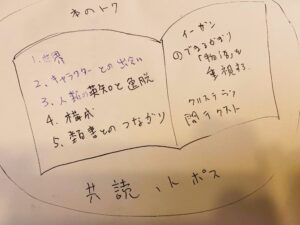 本のトク
1. 世界
2. キャラクターとの出会い
3. 人類の英知と逸脱
4. 構成
5. 類書とのつながり
イーガン
のできるかぎり
「物語」を
重視する
クリステヴァ
間テクスト
共読、トポス